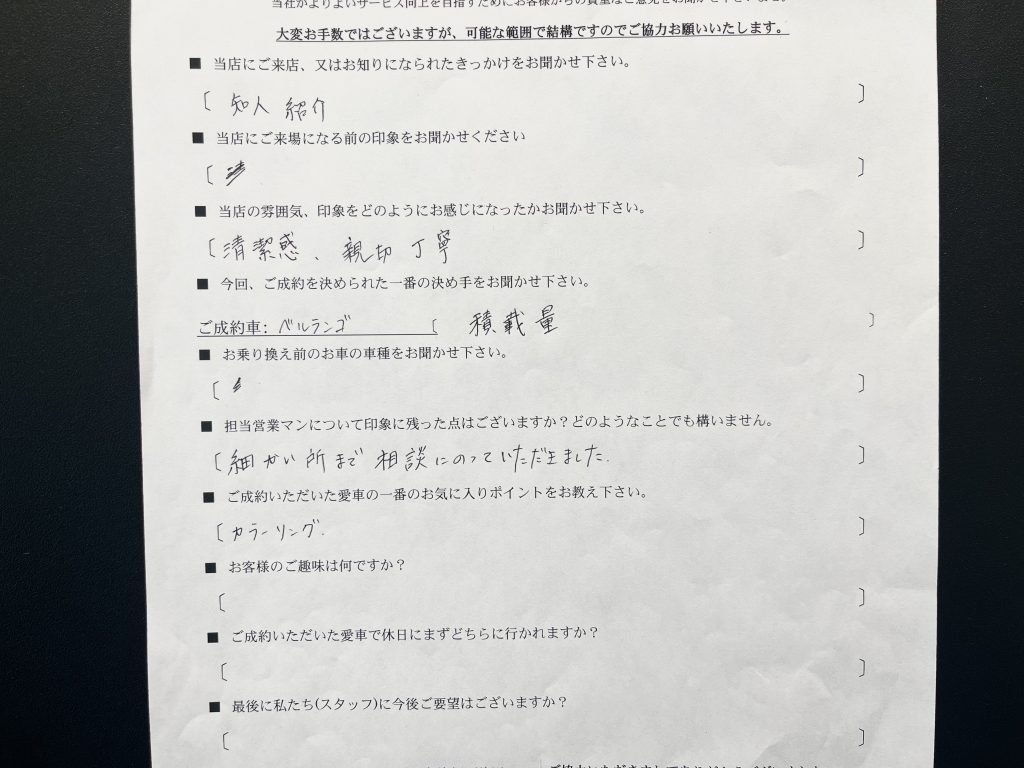 当社がよりよいサービス向上を目指すためにお客様からの貴重なご意見をお聞かせ下さいませ。
大変お手数ではございますが、可能な範囲で結構ですのでご協力お願いいたします。
■ 当店にご来店、又はお知りになられたきっかけをお聞かせ下さい。
〔 知人 紹介 〕
■ 当店にご来場になる前の印象をお聞かせください
〔 〕
■ 当店の雰囲気、印象をどのようにお感じになったかお聞かせ下さい。
〔 清潔感、親切丁寧 〕
■ 今回、ご成約を決められた一番の決め手をお聞かせ下さい。
ご成約車: ベルランゴ 〔 積載量 〕
■ お乗り換え前のお車の車種をお聞かせ下さい。
〔 〕
■ 担当営業マンについて印象に残った点はございますか？どのようなことでも構いません。
〔 細かい所まで相談にのっていただきました. 〕
■ ご成約いただいた愛車の一番のお気に入りポイントをお教え下さい。
〔 カラーリング. 〕
■ お客様のご趣味は何ですか？
〔 〕
■ ご成約いただいた愛車で休日にまずどちらに行かれますか？
〔 〕
■ 最後に私たち(スタッフ)に今後ご要望はございますか？
〔 〕